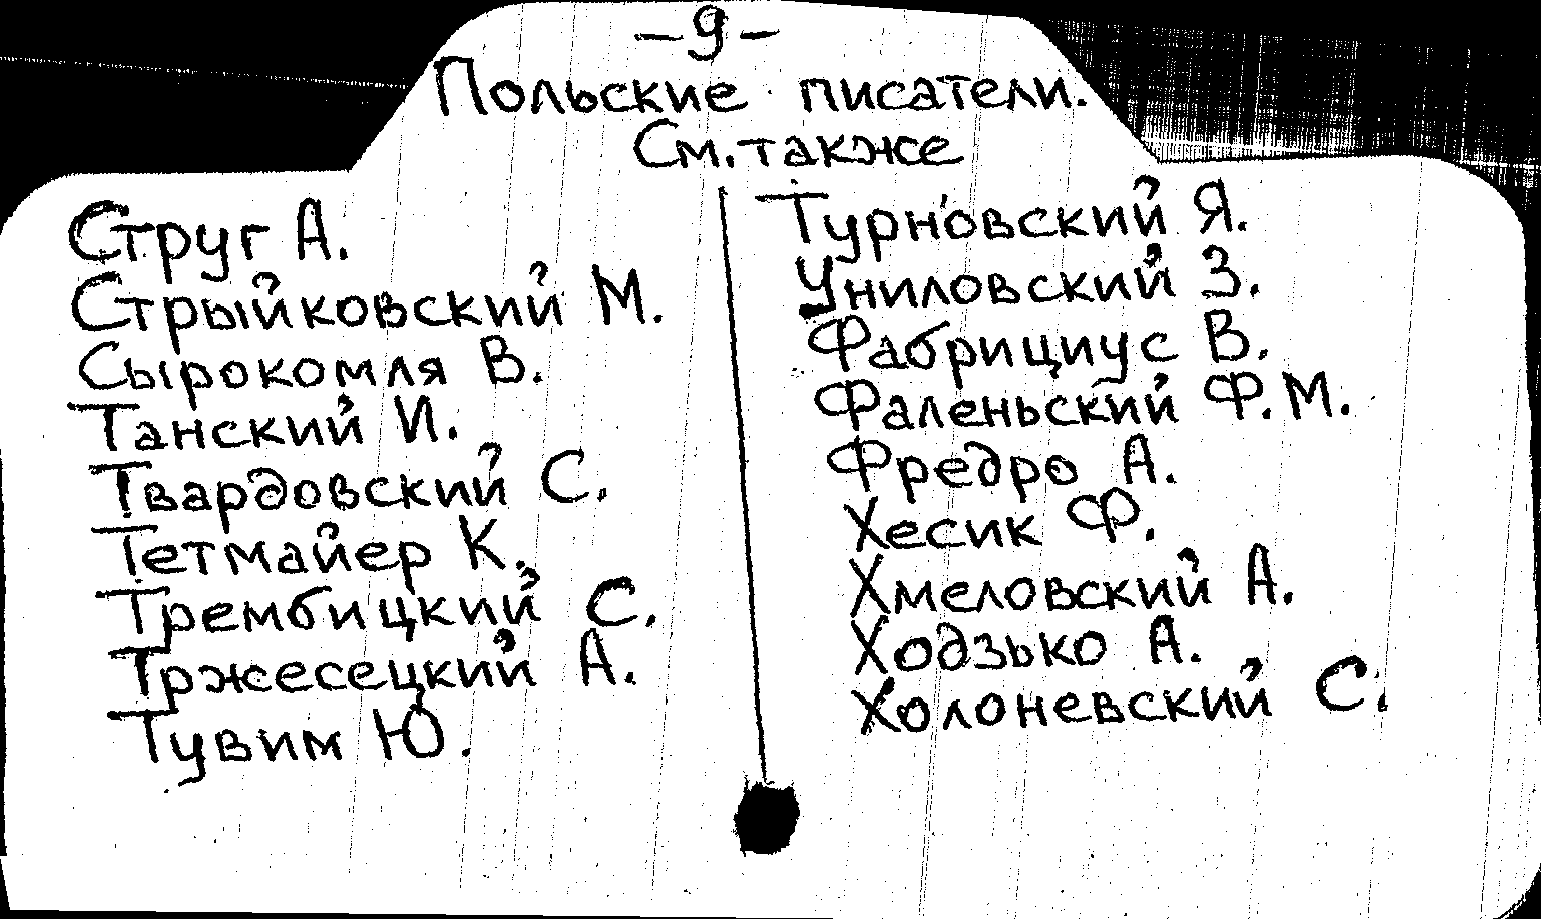 –9–
Польские писатели.
См. также
Струг А.
Стрыйковский М.
Сырокомля В.
Танский И.
Твардовский С.
Тетмайер К.
Трембицкий С.
Тржесецкий А.
Тувим Ю.
Турновский Я.
Униловский З.
Фабрициус В.
Фаленьский Ф. М.
Фредро А.
Хесик Ф.
Хмеловский А.
Ходзько А.
Холоневский С.